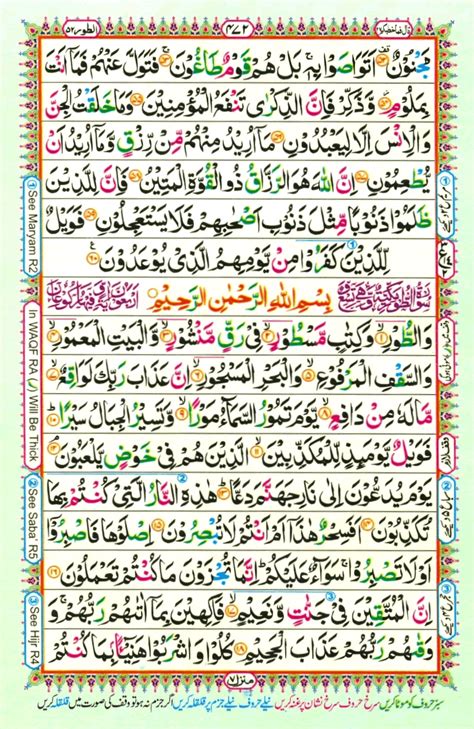 الطور ٥٢
٤٧٢
مَّجْنُوْنٌ ۝٥٢ اَتَوَاصَوْا بِهٖ ۚ بَلْ هُمْ قَوْمٌ طَاغُوْنَ ۝٥٣ فَتَوَلَّ عَنْهُمْ فَمَاۤ اَنْتَ
بِمَلُوْمٍ ۝٥٤ وَّذَكِّرْ فَاِنَّ الذِّكْرٰى تَنْفَعُ الْمُؤْمِنِيْنَ ۝٥٥ وَمَا خَلَقْتُ الْجِنَّ
وَالْاِنْسَ اِلَّا لِيَعْبُدُوْنِ ۝٥٦ مَاۤ اُرِيْدُ مِنْهُمْ مِّنْ رِّزْقٍ وَّمَاۤ اُرِيْدُ اَنْ
يُّطْعِمُوْنِ ۝٥٧ اِنَّ اللّٰهَ هُوَ الرَّزَّاقُ ذُو الْقُوَّةِ الْمَتِيْنُ ۝٥٨ فَاِنَّ لِلَّذِيْنَ
ظَلَمُوْا ذَنُوْبًا مِّثْلَ ذَنُوْبِ اَصْحٰبِهِمْ فَلَا يَسْتَعْجِلُوْنِ ۝٥٩ فَوَيْلٌ
لِّلَّذِيْنَ كَفَرُوْا مِنْ يَّوْمِهِمُ الَّذِيْ يُوْعَدُوْنَ ۝٦٠
بِسْمِ اللّٰهِ الرَّحْمٰنِ الرَّحِيْمِ
وَالطُّوْرِ ۝١ وَكِتٰبٍ مَّسْطُوْرٍ ۝٢ فِيْ رَقٍّ مَّنْشُوْرٍ ۝٣ وَّالْبَيْتِ الْمَعْمُوْرِ ۝٤
وَالسَّقْفِ الْمَرْفُوْعِ ۝٥ وَالْبَحْرِ الْمَسْجُوْرِ ۝٦ اِنَّ عَذَابَ رَبِّكَ لَوَاقِعٌ ۝٧
مَّا لَهٗ مِنْ دَافِعٍ ۝٨ يَّوْمَ تَمُوْرُ السَّمَآءُ مَوْرًا ۝٩ وَّتَسِيْرُ الْجِبَالُ سَيْرًا ۝١٠
فَوَيْلٌ يَّوْمَئِذٍ لِّلْمُكَذِّبِيْنَ ۝١١ الَّذِيْنَ هُمْ فِيْ خَوْضٍ يَّلْعَبُوْنَ ۝١٢
يَوْمَ يُدَعُّوْنَ اِلٰى نَارِ جَهَنَّمَ دَعًّا ۝١٣ هٰذِهِ النَّارُ الَّتِيْ كُنْتُمْ بِهَا
تُكَذِّبُوْنَ ۝١٤ اَفَسِحْرٌ هٰذَاۤ اَمْ اَنْتُمْ لَا تُبْصِرُوْنَ ۝١٥ اِصْلَوْهَا فَاصْبِرُوْۤا
اَوْ لَا تَصْبِرُوْا ۚ سَوَآءٌ عَلَيْكُمْ ؕ اِنَّمَا تُجْزَوْنَ مَا كُنْتُمْ تَعْمَلُوْنَ ۝١٦
اِنَّ الْمُتَّقِيْنَ فِيْ جَنّٰتٍ وَّنَعِيْمٍ ۝١٧ فٰكِهِيْنَ بِمَاۤ اٰتٰىهُمْ رَبُّهُمْ ۚ وَ
وَقٰىهُمْ رَبُّهُمْ عَذَابَ الْجَحِيْمِ ۝١٨ كُلُوْا وَاشْرَبُوْا هَنِيْٓـًٔۢا بِمَا كُنْتُمْ
منزل ٧
① See Maryam R2
In WAQF RA (ر) Will Be Thick
② See Saba' R5
③ See Hijr R4
سبز حروف کو موٹا کریں سرخ حروف سرخ نشان پر غنہ کریں نیلے حروف نیلے جزم پر قلقلہ کریں اگر جزم نہ ہو تو وقف کی صورت میں قلقلہ کریں